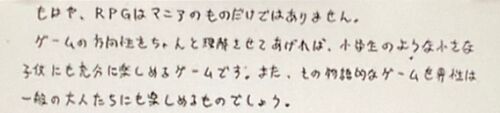 もはや、RPGはマニアのものだけではありません。
ゲームの方向性をちゃんと理解させてあげれば、小学生のような小さな
子供にも充分に楽しめるゲームです。また、その物語的なゲーム世界は
一般の大人たちにも楽しめるものでしょう。